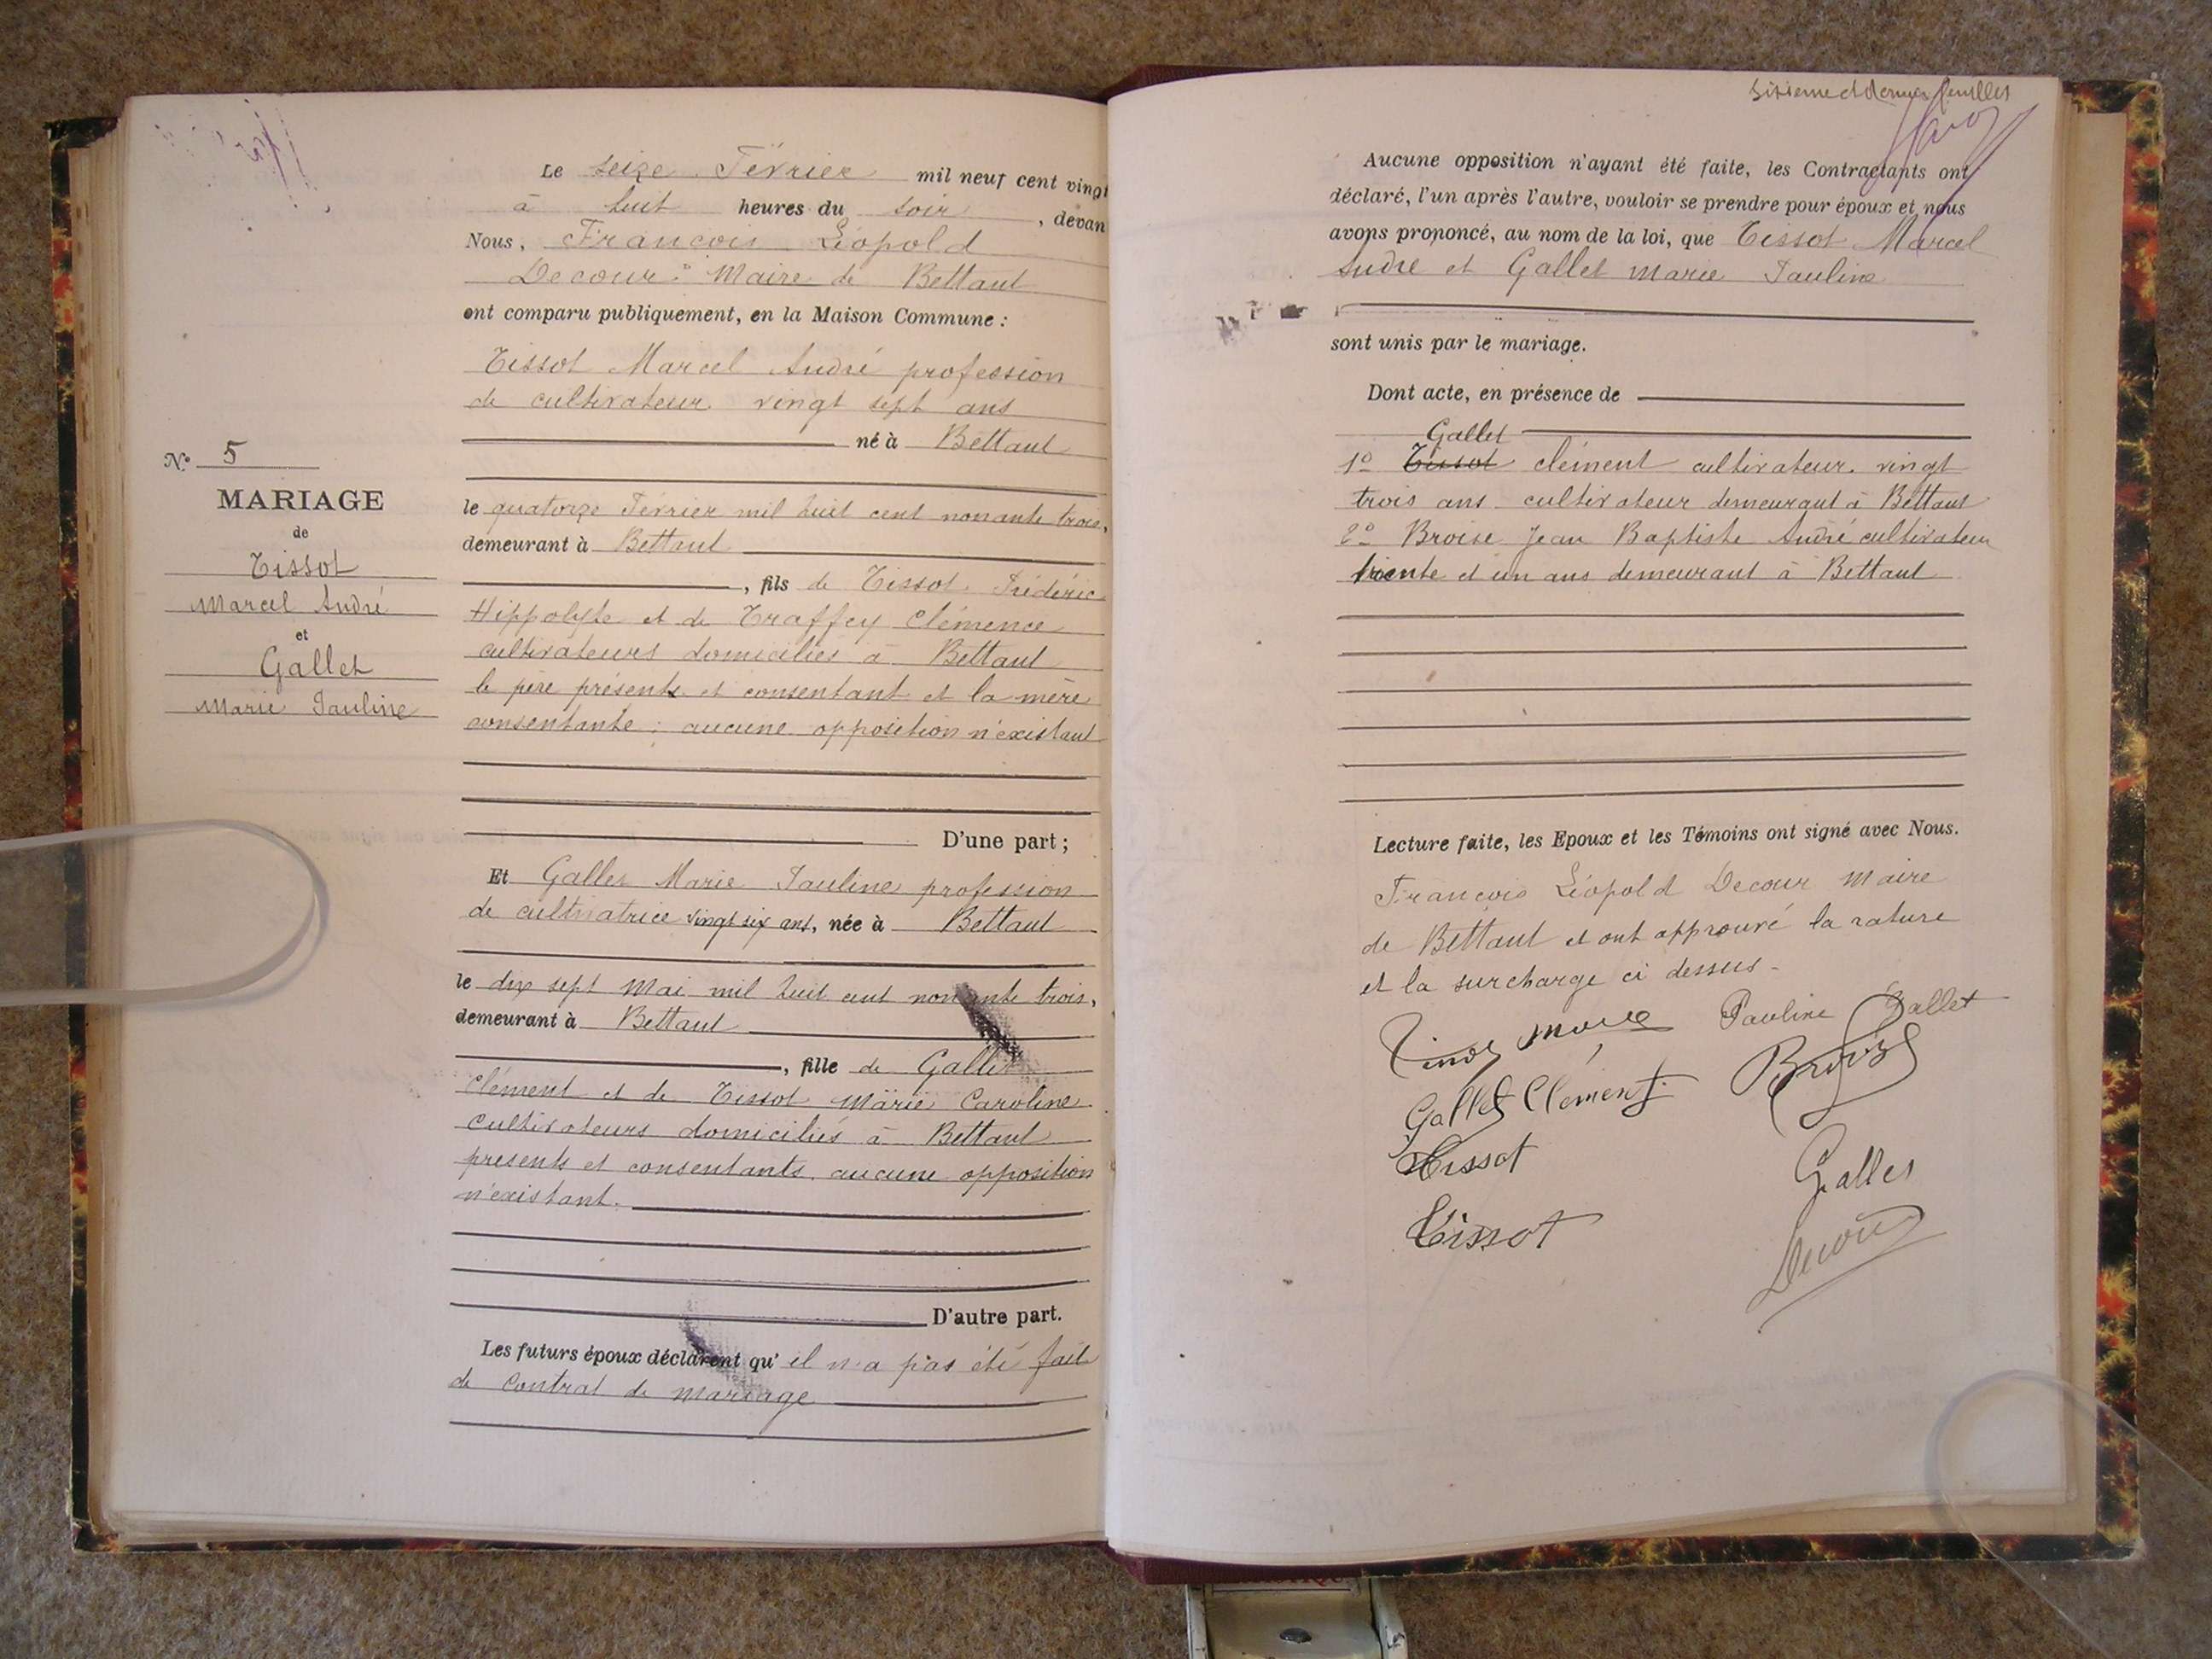 Le seize Février mil neuf cent vingt
à huit heures du soir, devan
Nous, François Léopold
Decour Maire de Bettaut
ont comparu publiquement, en la Maison Commune :
Tissot Marcel André profession
de cultivateur vingt sept ans
né à Bettaut
le quatorze Février mil huit cent nonante trois,
demeurant à Bettaut
, fils de Tissot Frédéric
Hippolyte et de Traffey Clémence
cultivateurs domiciliés à Bettaut
le père présent et consentant et la mère
consentante ; aucune opposition n'existant
D'une part ;
N° 5
MARIAGE
de
Tissot
Marcel André
et
Gallet
Marie Pauline
Et Gallet Marie Pauline profession
de cultivatrice vingt six ans, née à Bettaut
le dix sept Mai mil huit cent nonante trois,
demeurant à Bettaut
, fille de Gallet
Clément et de Tissot Marie Caroline
cultivateurs domiciliés à Bettaut
présents et consentants, aucune opposition
n'existant.
D'autre part.
Les futurs époux déclarent qu'il n'a pas été fait
de Contrat de mariage
Sixième et dernier feuillet
Aucune opposition n'ayant été faite, les Contractants ont
déclaré, l'un après l'autre, vouloir se prendre pour époux et nous
avons prononcé, au nom de la loi, que Tissot Marcel
André et Gallet Marie Pauline
sont unis par le mariage.
Dont acte, en présence de
Gallet
1° Tissot clément cultivateur vingt
trois ans cultivateur demeurant à Bettaut
2° Broise Jean Baptiste André cultivateur
trente et un ans demeurant à Bettaut
Lecture faite, les Epoux et les Témoins ont signé avec Nous.
François Léopold Decour Maire
de Bettaut et ont approuvé la rature
et la surcharge ci dessus -
Pauline Gallet
Gallet Clément
Tissot
Gallet
Tissot
Decour